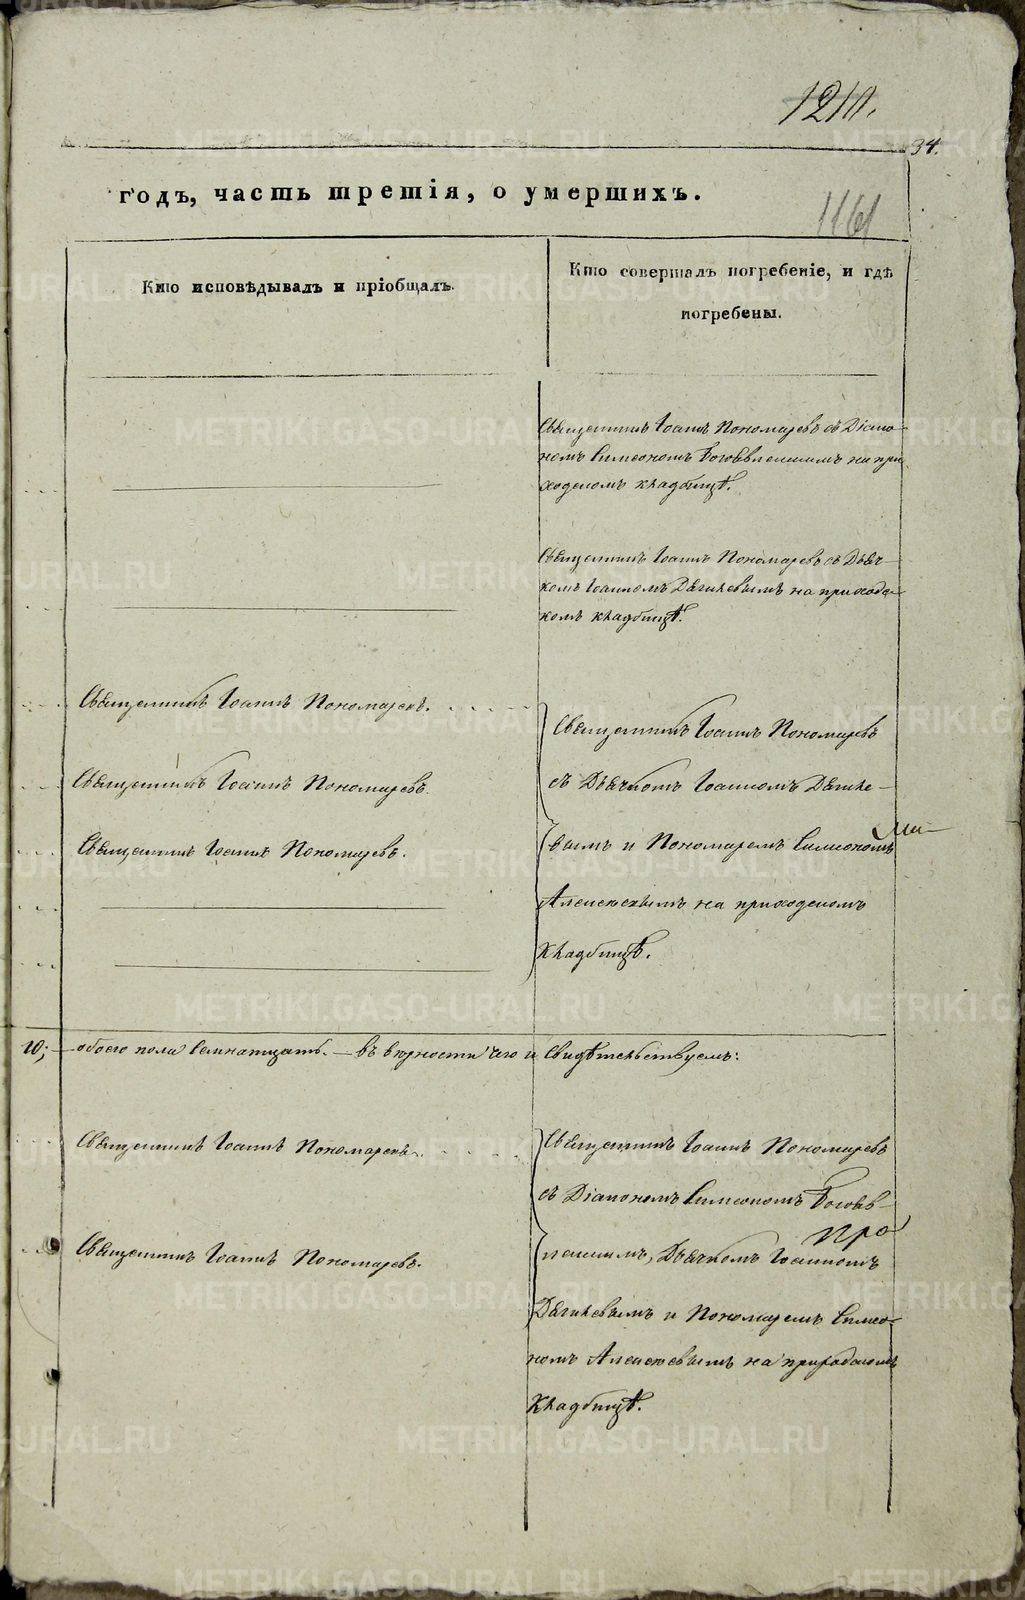 1210.
34.
годъ, часть третія, о умершихъ.
1161
Кто исповѣдывалъ и пріобщалъ.
Кто совершалъ погребеніе, и гдѣ
погребены.
Священникъ Іоаннъ Пономаревъ съ Діако-
номъ Симеономъ Богоявленскимъ на при
ходскомъ кладбищѣ.
Священникъ Іоаннъ Пономаревъ съ Дьяч-
комъ Іоанномъ на приходс-
комъ кладбищѣ.
Священникъ Іоаннъ Пономаревъ.
Священникъ Іоаннъ Пономаревъ
Священникъ Іоаннъ Пономаревъ.
Священникъ Іоаннъ Пономаревъ
съ Дьячкомъ Іоанномъ
вымъ и Пономаремъ Симеономъ
Алексѣевымъ на приходскомъ
кладбищѣ.
10; — обоего пола семнатцать. — въ верности чего и свидѣтельствуемъ:
Священникъ Іоаннъ Пономаревъ.
Священникъ Іоаннъ Пономаревъ.
Священникъ Іоаннъ Пономаревъ
съ Діакономъ Симеономъ Богояв-
ленскимъ, Дьячкомъ Іоанномъ
и Пономаремъ Симео-
номъ Алексѣевымъ на приходскомъ
кладбищѣ.
METRIKI.GASO-URAL.RU